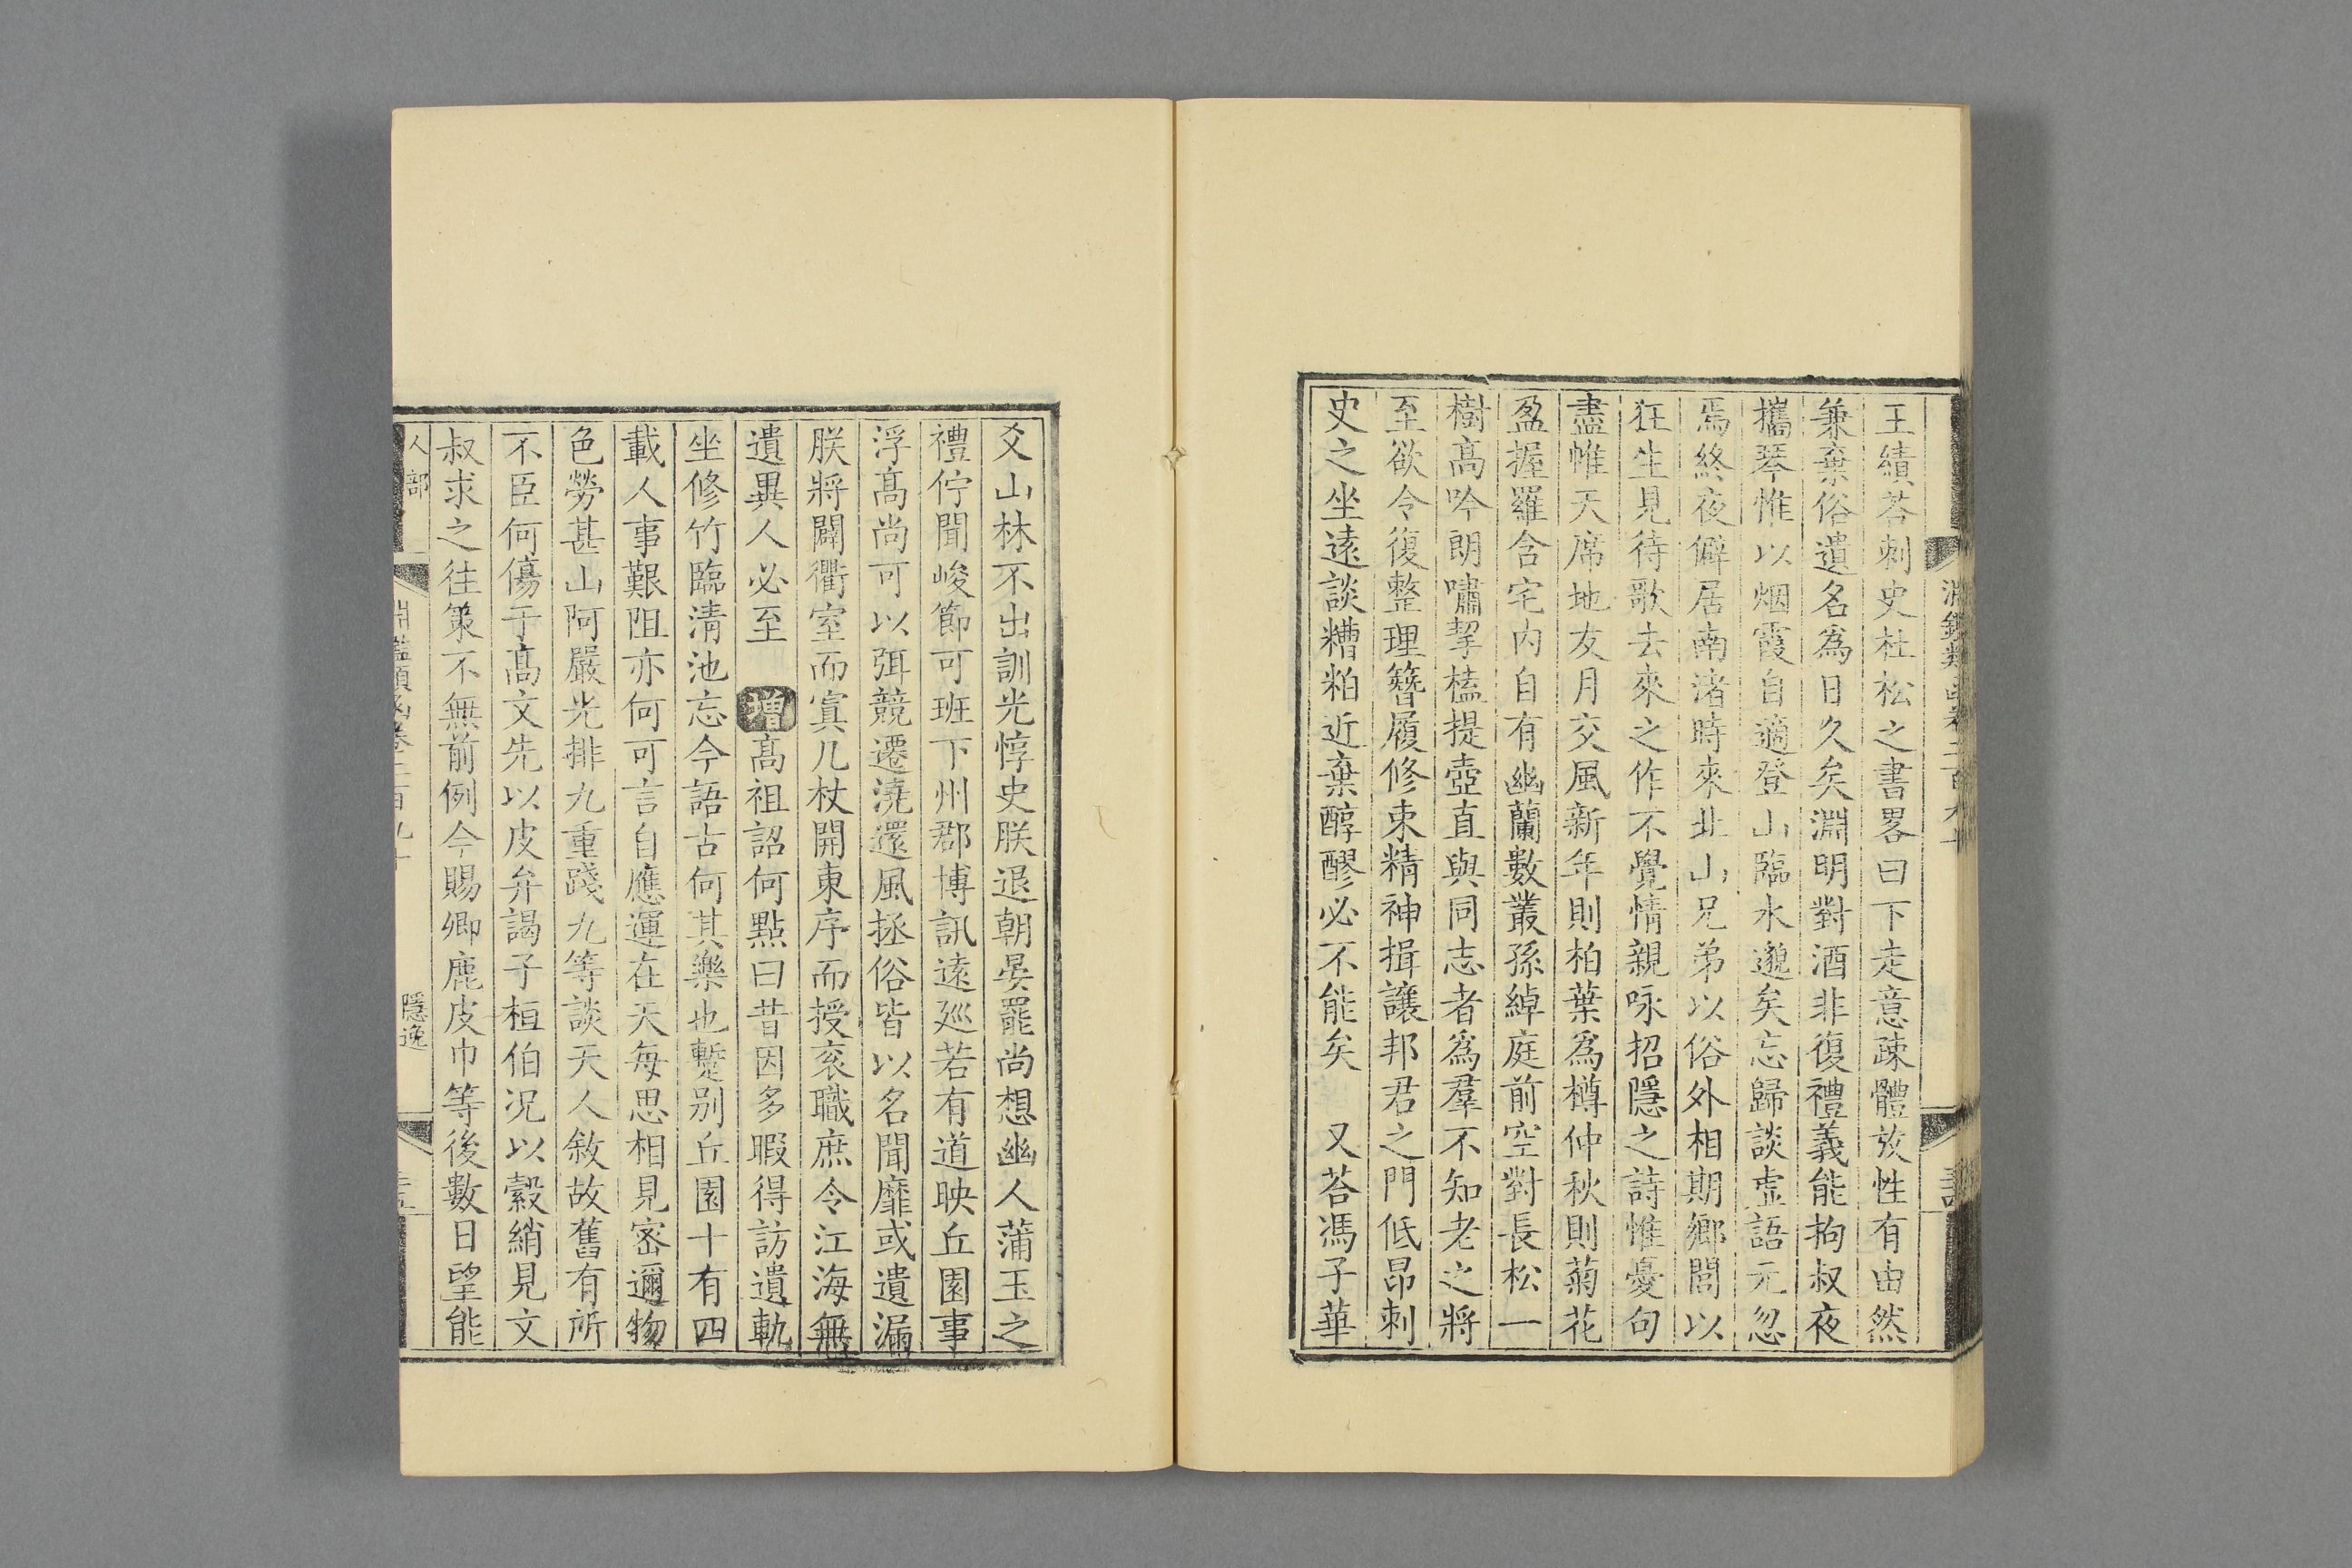 王績荅刺史杜松之書畧曰下走意疎體放性有由然
兼棄俗遺名為日久矣淵明對酒非復禮義能拘叔夜
攜琴惟以烟霞自適登山臨水邈矣忘歸談虛語元忽
焉終夜僻居南渚時來北山兄弟以俗外相期鄉閭以
狂生見待歌去來之作不覺情親咏招隱之詩惟憂句
盡帷天席地友月交風新年則柏葉為樽仲秋則菊花
盈握羅含宅內自有幽蘭數叢孫綽庭前空對長松一
樹高吟朗嘯挈榼提壺直與同志者為羣不知老之將
至欲令復整理簪履修束精神揖讓邦君之門低昂刺
史之坐遠談糟粕近棄醇醪必不能矣 又荅馮子華
爻山林不出訓光惇史朕退朝晏罷尚想幽人蒲玉之
禮佇聞峻節可班下州郡博訊遠巡若有道映丘園事
浮高尚可以弭競遷澆還風拯俗皆以名聞靡或遺漏
朕將闢衢室而寘几杖開東序而授衮職庶令江海無
遺異人必至 增高祖詔何點曰昔因多暇得訪遺軌
坐修竹臨清池忘今語古何其樂也蹔別丘園十有四
載人事艱阻亦何可言自應運在天每思相見密邇物
色勞甚山阿嚴光排九重踐九等談天人敘故舊有所
不臣何傷于高文先以皮弁謁子桓伯况以縠綃見文
叔求之往策不無前例今賜卿鹿皮巾等後數日望能
人部
淵鑑類函卷二百九十
隱逸